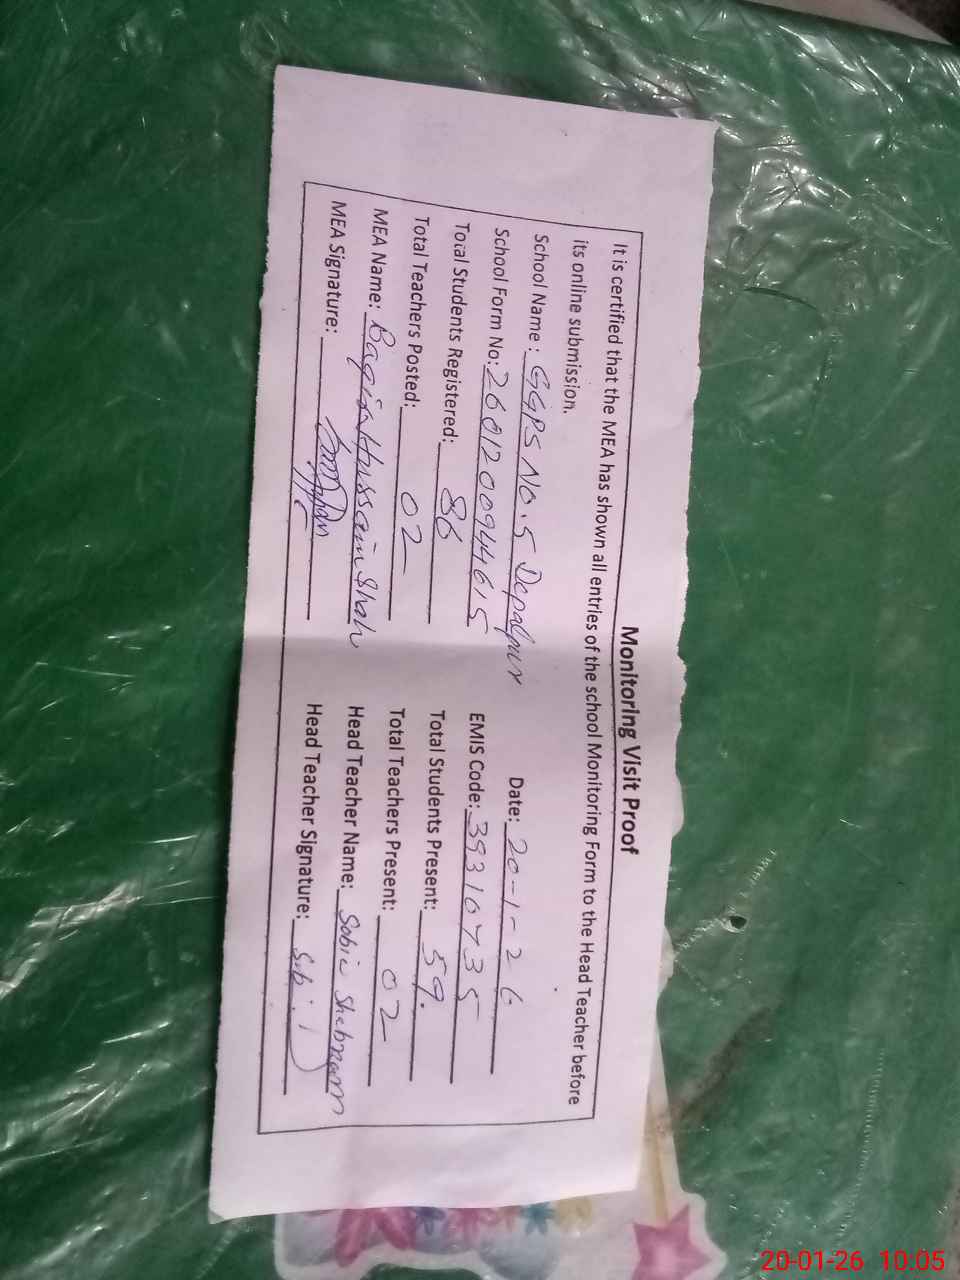 Monitoring Visit Proof
It is certified that the MEA has shown all entries of the school Monitoring Form to the Head Teacher before
its online submission.
School Name: GGPS No. 5 Depalpur Date: 20-1-26
School Form No: 26012009441615 EMIS Code: 39310735
Total Students Registered: 86 Total Students Present: 59.
Total Teachers Posted: 02 Total Teachers Present: 02
MEA Name: Baqir Hussain Shah Head Teacher Name: Sobia Shabnam
MEA Signature: Head Teacher Signature:
20-01-26 10:05